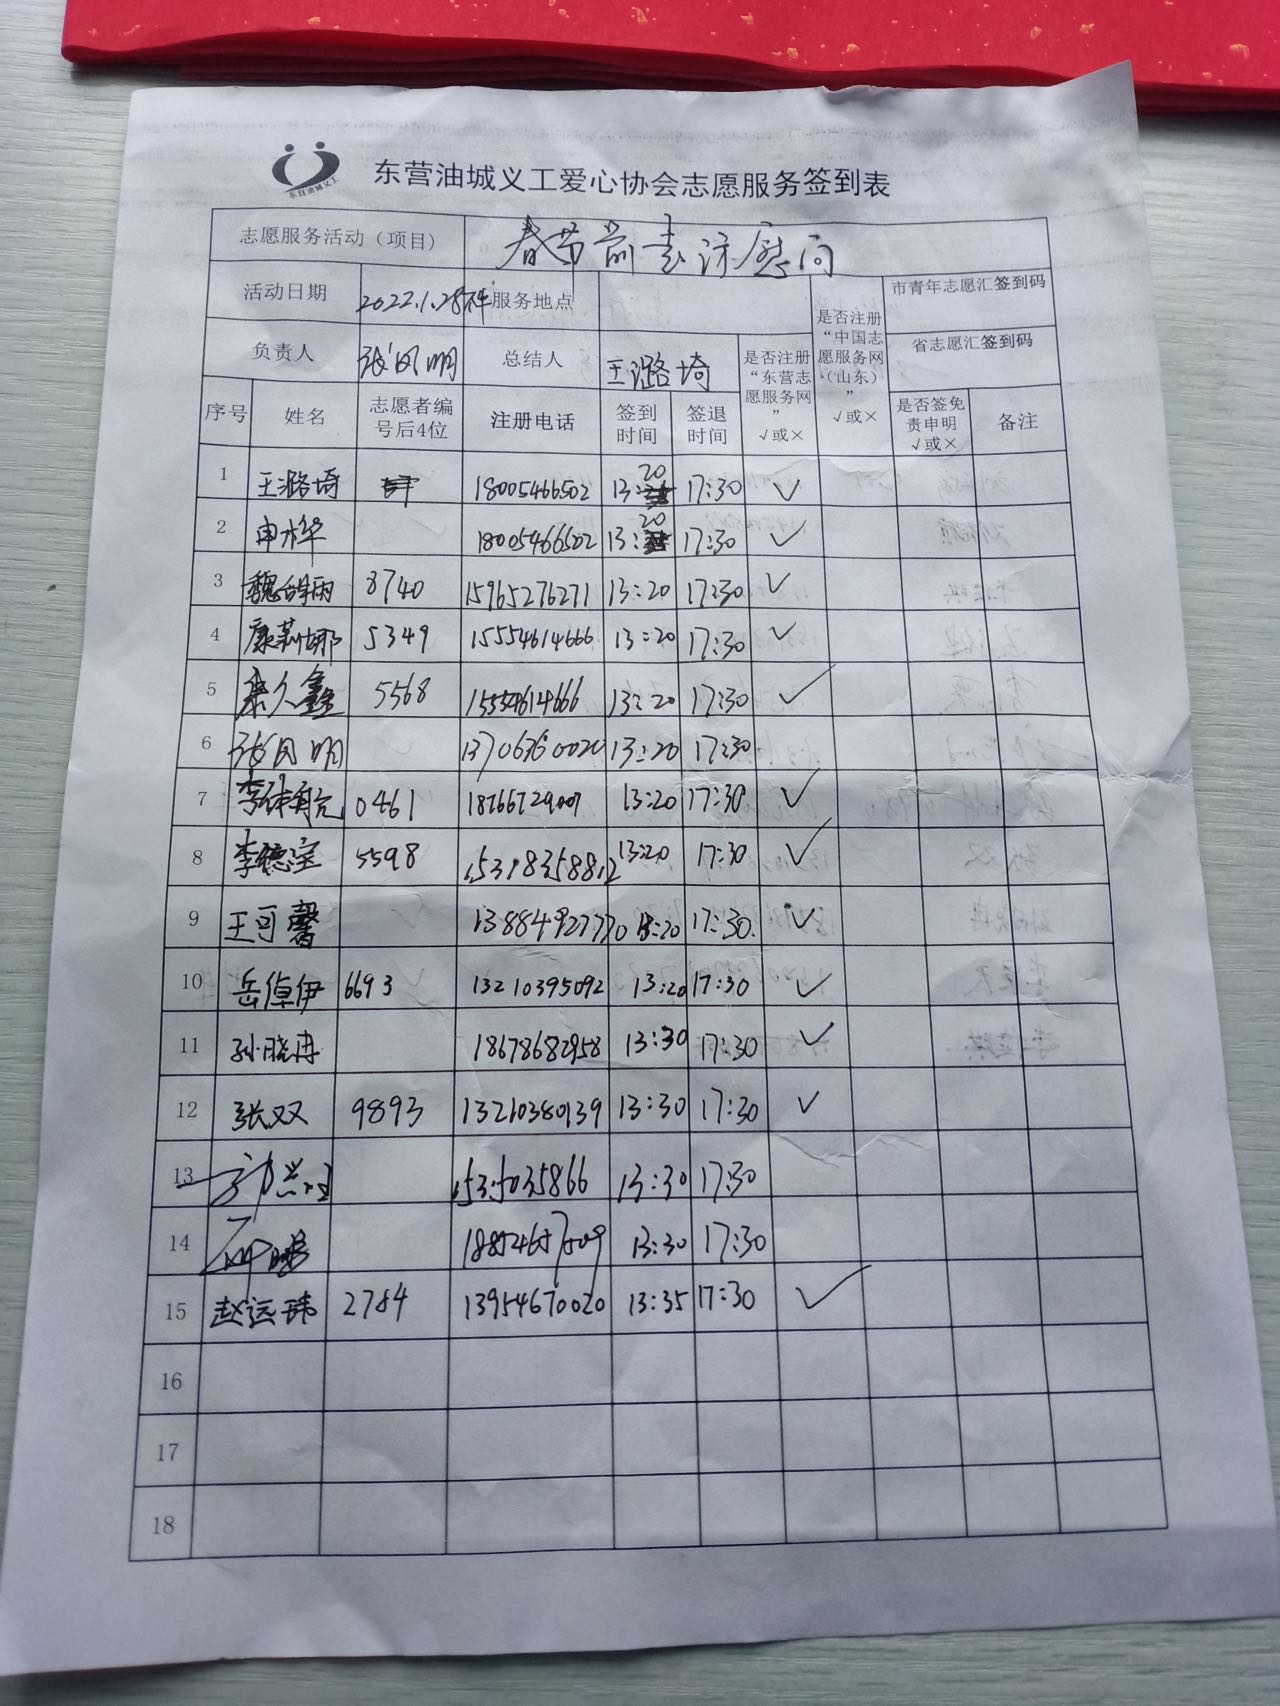 东营油城义工
东营油城义工爱心协会志愿服务签到表
志愿服务活动（项目） 春节前走访慰问
活动日期 2022.1.28 服务地点 市青年志愿汇签到码
负责人 张凤明 总结人 王潞埼 省志愿汇签到码
是否注册“东营志愿服务网” √或×
是否注册“中国志愿服务网（山东）” √或×
序号 姓名 志愿者编号后4位 注册电话 签到时间 签退时间 是否签免责申明 √或× 备注
1 王潞埼 18005466502 13:20 17:30 ✓
2 申桦 18005466502 13:20 17:30 ✓
3 魏 8740 15965276271 13:20 17:30 ✓
4 康莉娜 5349 15554614666 13:20 17:30 ✓
5 康久鑫 5568 15554614666 13:20 17:30 ✓
6 张凤明 13:20 17:30
7 李 0461 13:20 17:30 ✓
8 李德宝 5598 15318358812 13:20 17:30 ✓
9 王可馨 13884927770 13:20 17:30 ✓
10 岳倬伊 6693 13210395092 13:20 17:30 ✓
11 孙晓冉 18678682958 13:30 17:30 ✓
12 张双 9893 13210380139 13:30 17:30 ✓
13 13:30 17:30
14 13:30 17:30
15 赵远玮 2784 13954670020 13:35 17:30 ✓
16
17
18